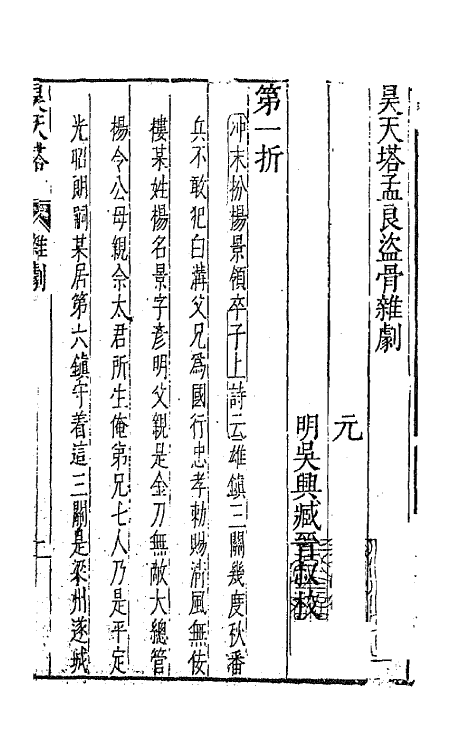 昊天塔孟良盜骨雜劇
元
明吳興臧晉叔校
第一折
冲末扮楊景領卒子上詩云雄鎮三關幾度秋番
兵不敢犯白溝父兄爲國行忠孝勅賜淸風無佞
樓某姓楊名景字彥明父親是金刀無敵大總管
楊令公母親佘太君所生俺弟兄七人乃是平定
光昭朗嗣某居第六鎮守着這三關是梁州遂城
昊天塔 雜劇 一